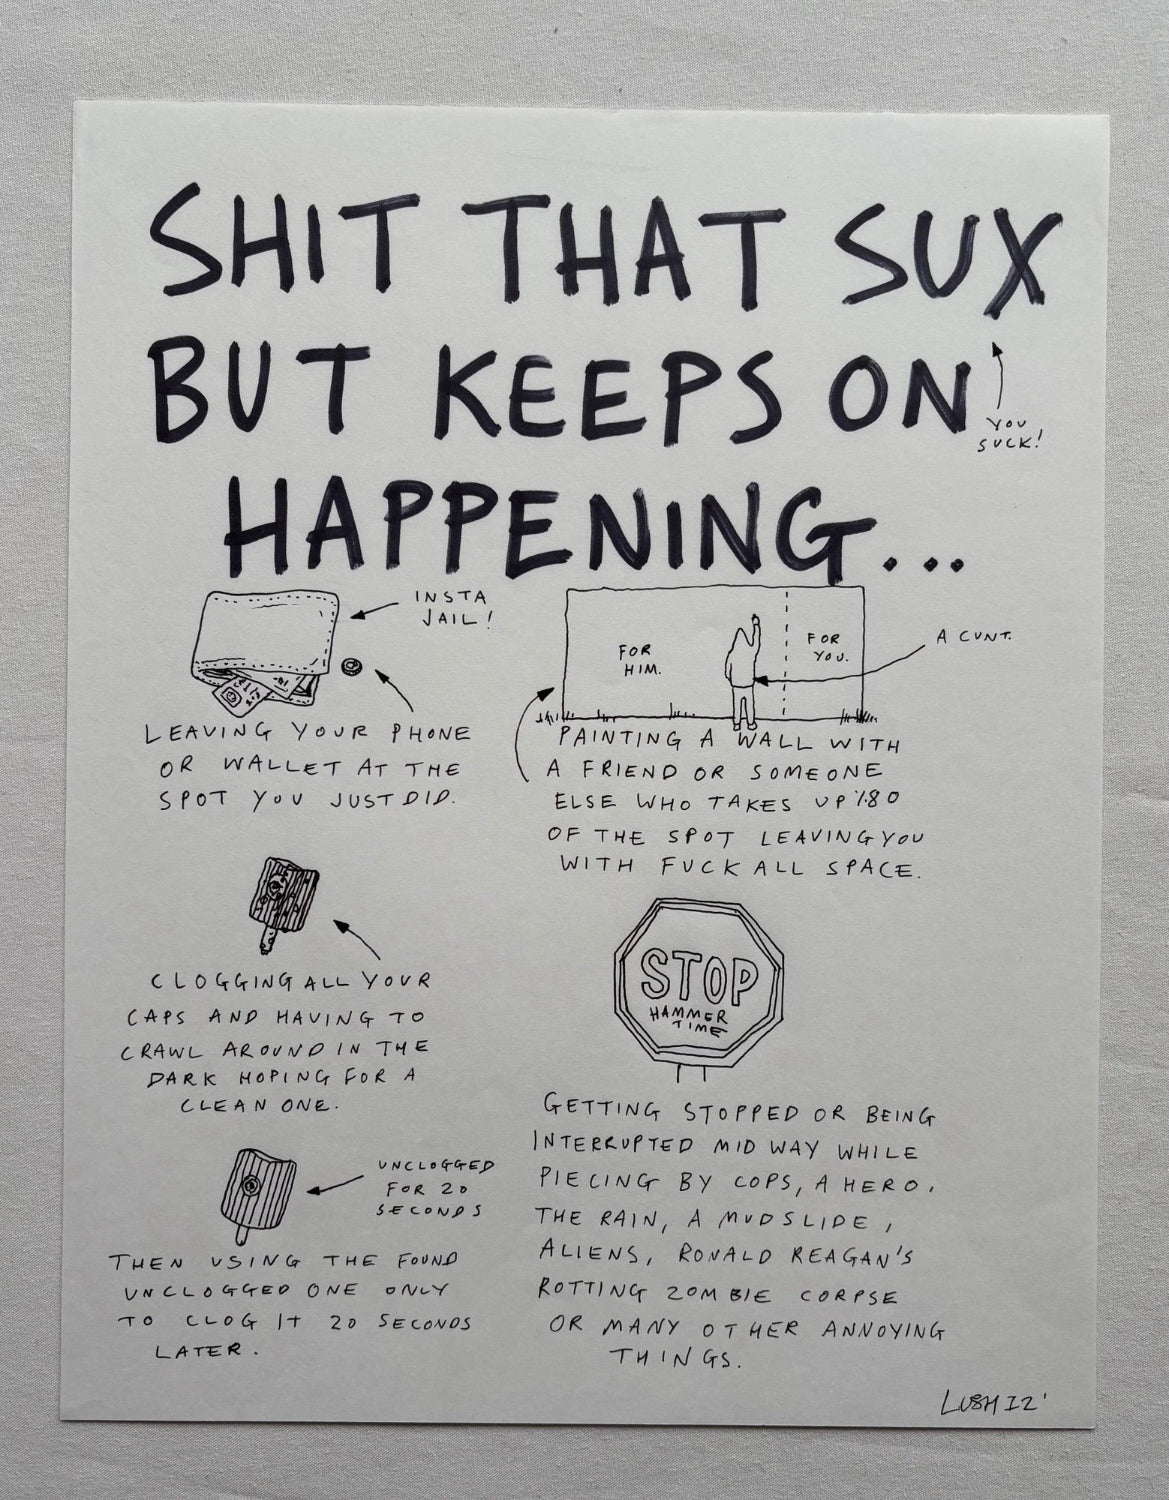 SHIT THAT SUX
BUT KEEPS ON
HAPPENING...
YOU
SUCK!
INSTA
JAIL!
LEAVING YOUR PHONE
OR WALLET AT THE
SPOT YOU JUST DID.
FOR
HIM.
FOR
YOU.
A CUNT.
PAINTING A WALL WITH
A FRIEND OR SOMEONE
ELSE WHO TAKES UP %80
OF THE SPOT LEAVING YOU
WITH FUCK ALL SPACE.
CLOGGING ALL YOUR
CAPS AND HAVING TO
CRAWL AROUND IN THE
DARK HOPING FOR A
CLEAN ONE.
UNCLOGGED
FOR 20
SECONDS
THEN USING THE FOUND
UNCLOGGED ONE ONLY
TO CLOG IT 20 SECONDS
LATER.
STOP
HAMMER
TIME
GETTING STOPPED OR BEING
INTERRUPTED MID WAY WHILE
PIECING BY COPS, A HERO,
THE RAIN, A MUDSLIDE,
ALIENS, RONALD REAGAN'S
ROTTING ZOMBIE CORPSE
OR MANY OTHER ANNOYING
THINGS.
LUSH 12'